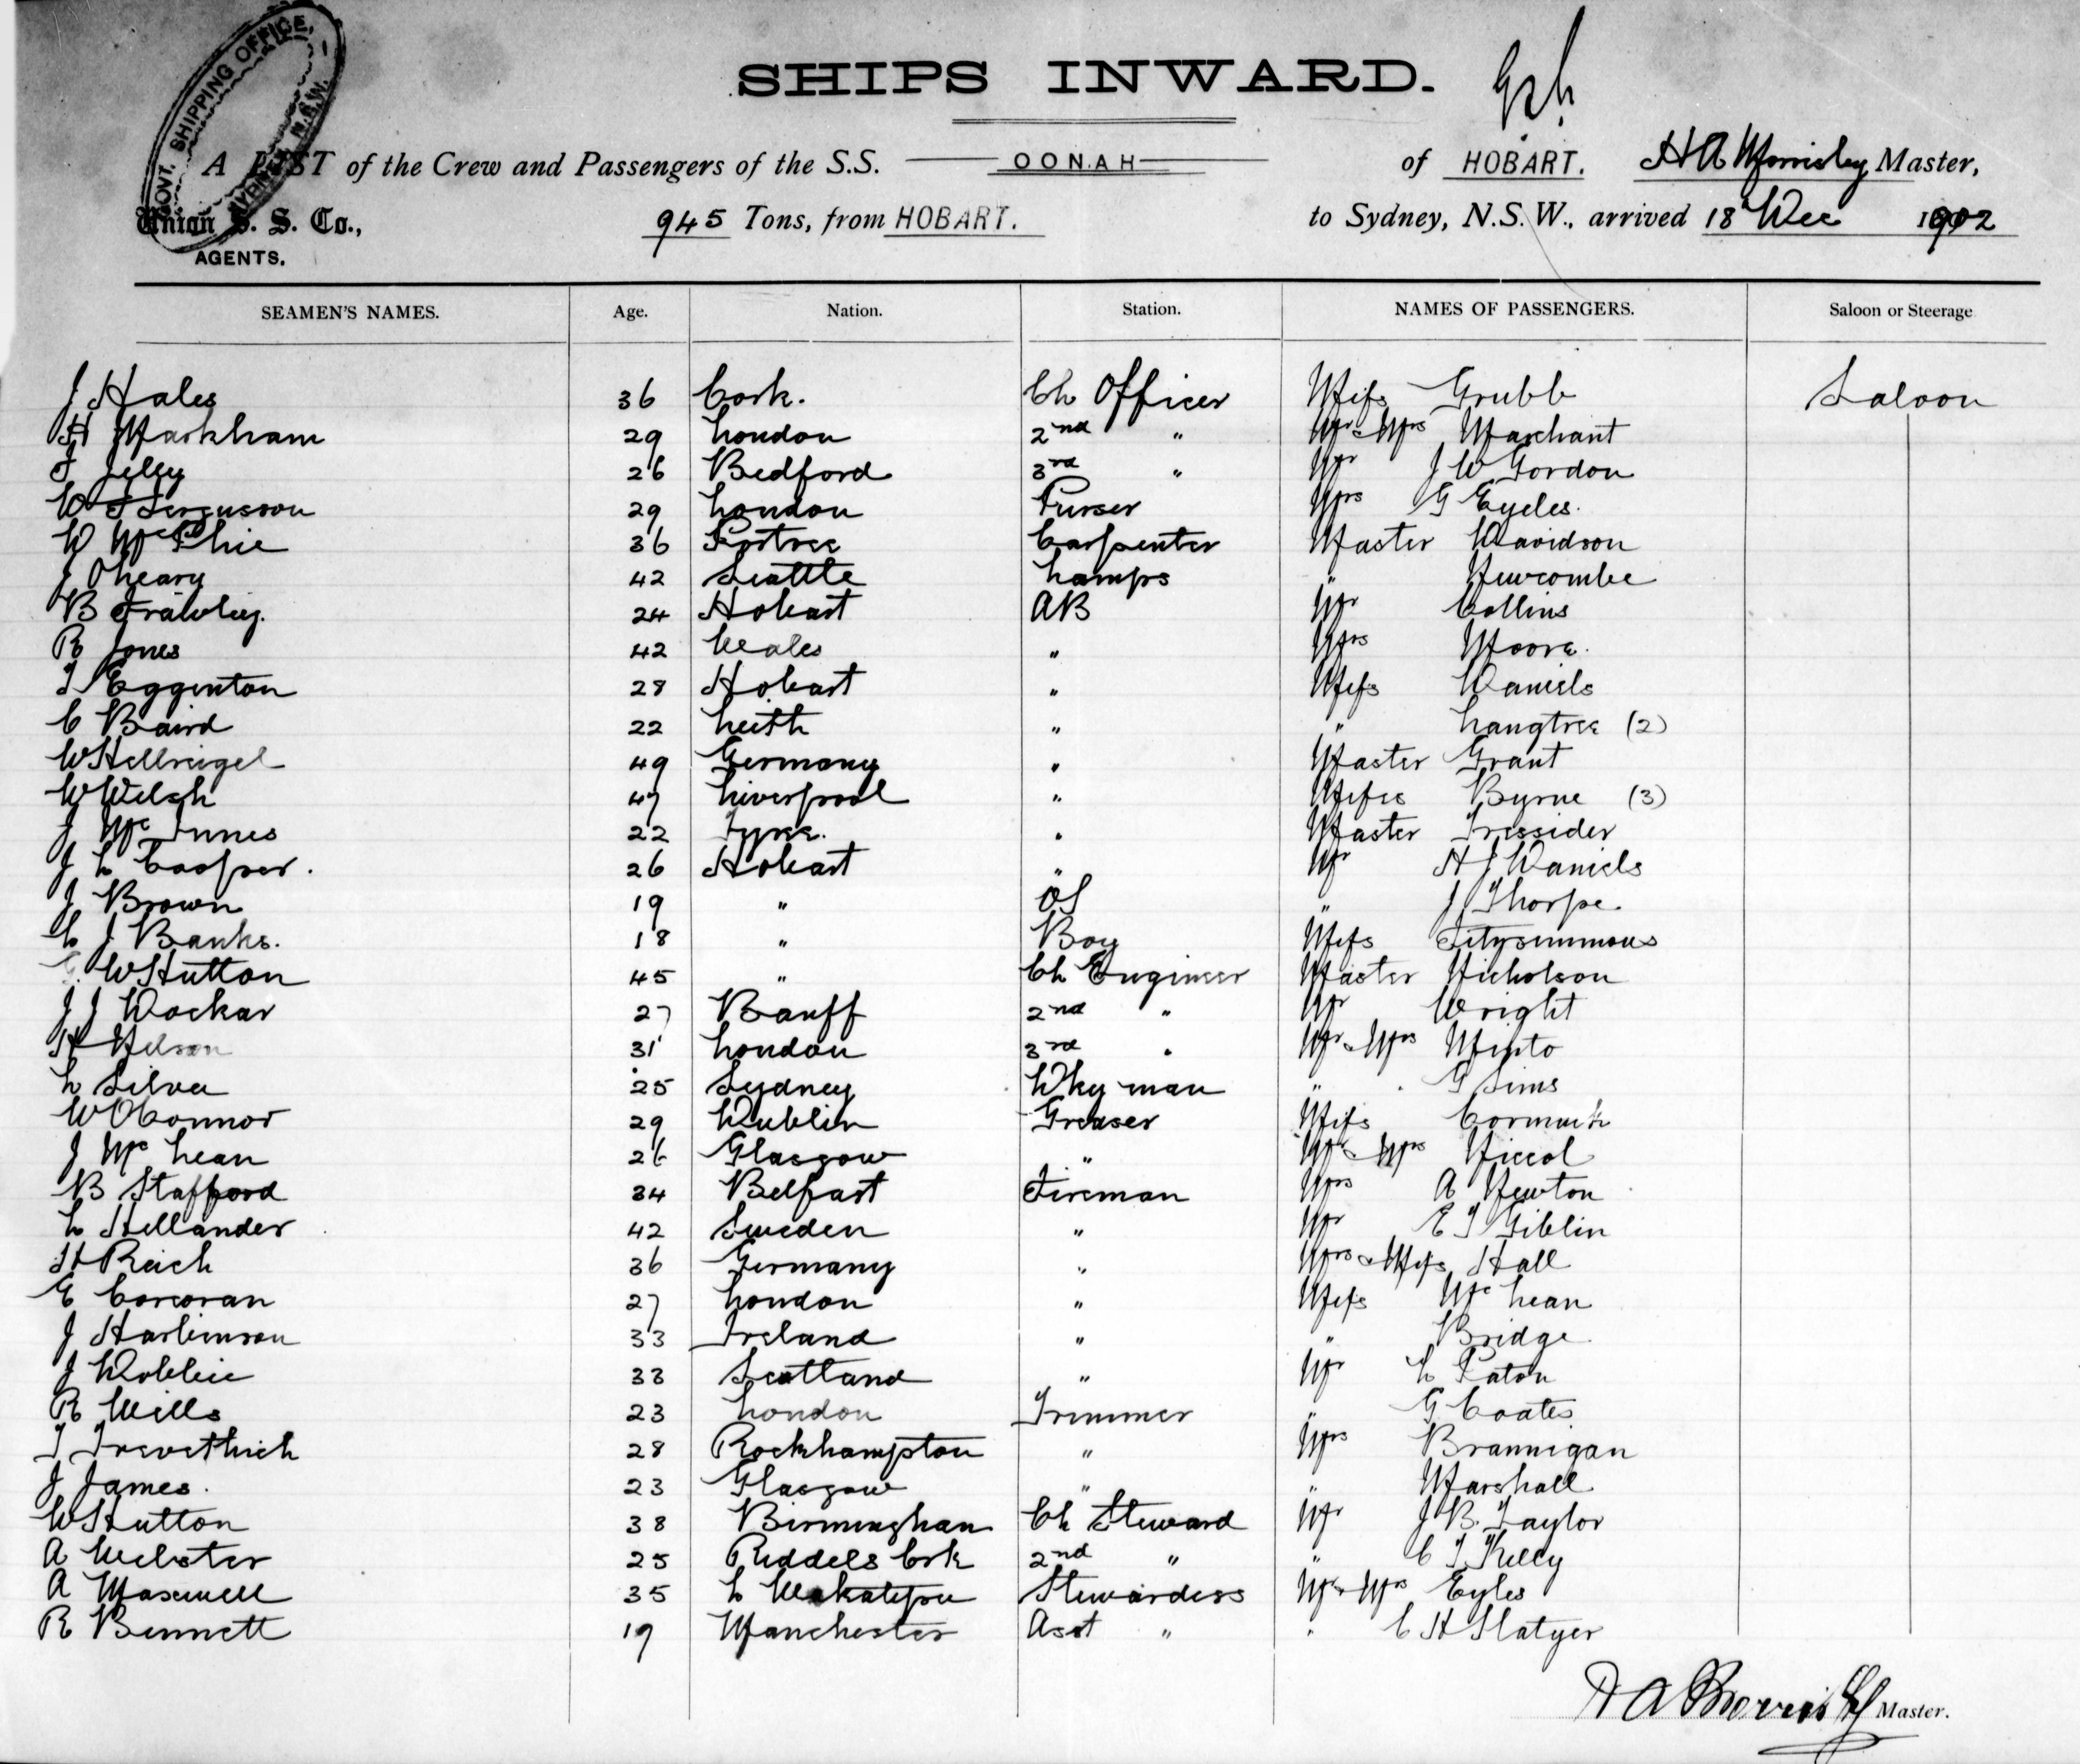 GOVT. SHIPPING OFFICE, N.S.W.
SHIPS INWARD.
A LIST of the Crew and Passengers of the S.S. OONAH of HOBART. H A Morrisby Master,
Union S. S. Co., AGENTS. 945 Tons, from HOBART. to Sydney, N.S.W., arrived 18 Dec 1902
SEAMEN'S NAMES. Age. Nation. Station. NAMES OF PASSENGERS. Saloon or Steerage
J Hales 36 Cork. Ch Officer Miss Grubb Saloon
H Markham 29 London 2nd " Mr & Mrs Marchant
F Jelly 26 Bedford 3rd " Mr J W Gordon
W F Fergusson 29 London Purser Mrs G Eycles.
W McPhie 36 Portree Carpenter Master Davidson
J OLeary 42 Seattle Lamps " Newcombe
B Frawley. 24 Hobart AB Mr Collins
R Jones 42 Wales " Mrs Moore.
T Eggenton 28 Hobart " Miss Daniels
C Baird 22 Leith " " Langtree (2)
W Hellreigel 49 Germany " Master Grant
W Welsh 47 Liverpool " Misses Byrne (3)
J McInnes 22 Tyree. " Master Tressider
J L Cooper. 26 Hobart " Mr H J Daniels
J Brown 19 " OS " J Thorpe.
L J Banks. 18 " Boy Miss Fitzsimmons
W Hutton 45 " Ch Engineer Master Nicholson
J J Dockar 27 Banff 2nd " Mr Wright
H Nelson 31 London 3rd " Mr & Mrs Minto
L Silva 25 Sydney Wky man " G Sims
W OConnor 29 Dublin Greaser Miss Cormack
J McLean 26 Glasgow " Mr & Mrs Niccol
B Stafford 34 Belfast Fireman Mrs A Newton
L Hellander 42 Sweden " Mr E T Giblin
H Reich 36 Germany " Mrs & Miss Hall
E Corcoran 27 London " Miss McLean
J Harbinson 33 Ireland " " Bridge
J Dobbie 33 Scotland " Mr L Paton
R Wills 23 London Trimmer G Coates
T Trevethick 28 Rockhampton " Mrs Brannigan
J James. 23 Glasgow " " Marshall
W Hutton 38 Birmingham Ch Steward Mr J B. Taylor
A Webster 25 Riddels Crk 2nd " " C T Kelly
A Maxwell 35 L Wakatipu Stewardess Mr & Mrs Eyles
R Bennett 19 Manchester Asst " " C H Slatyer
H A Morrisby Master.